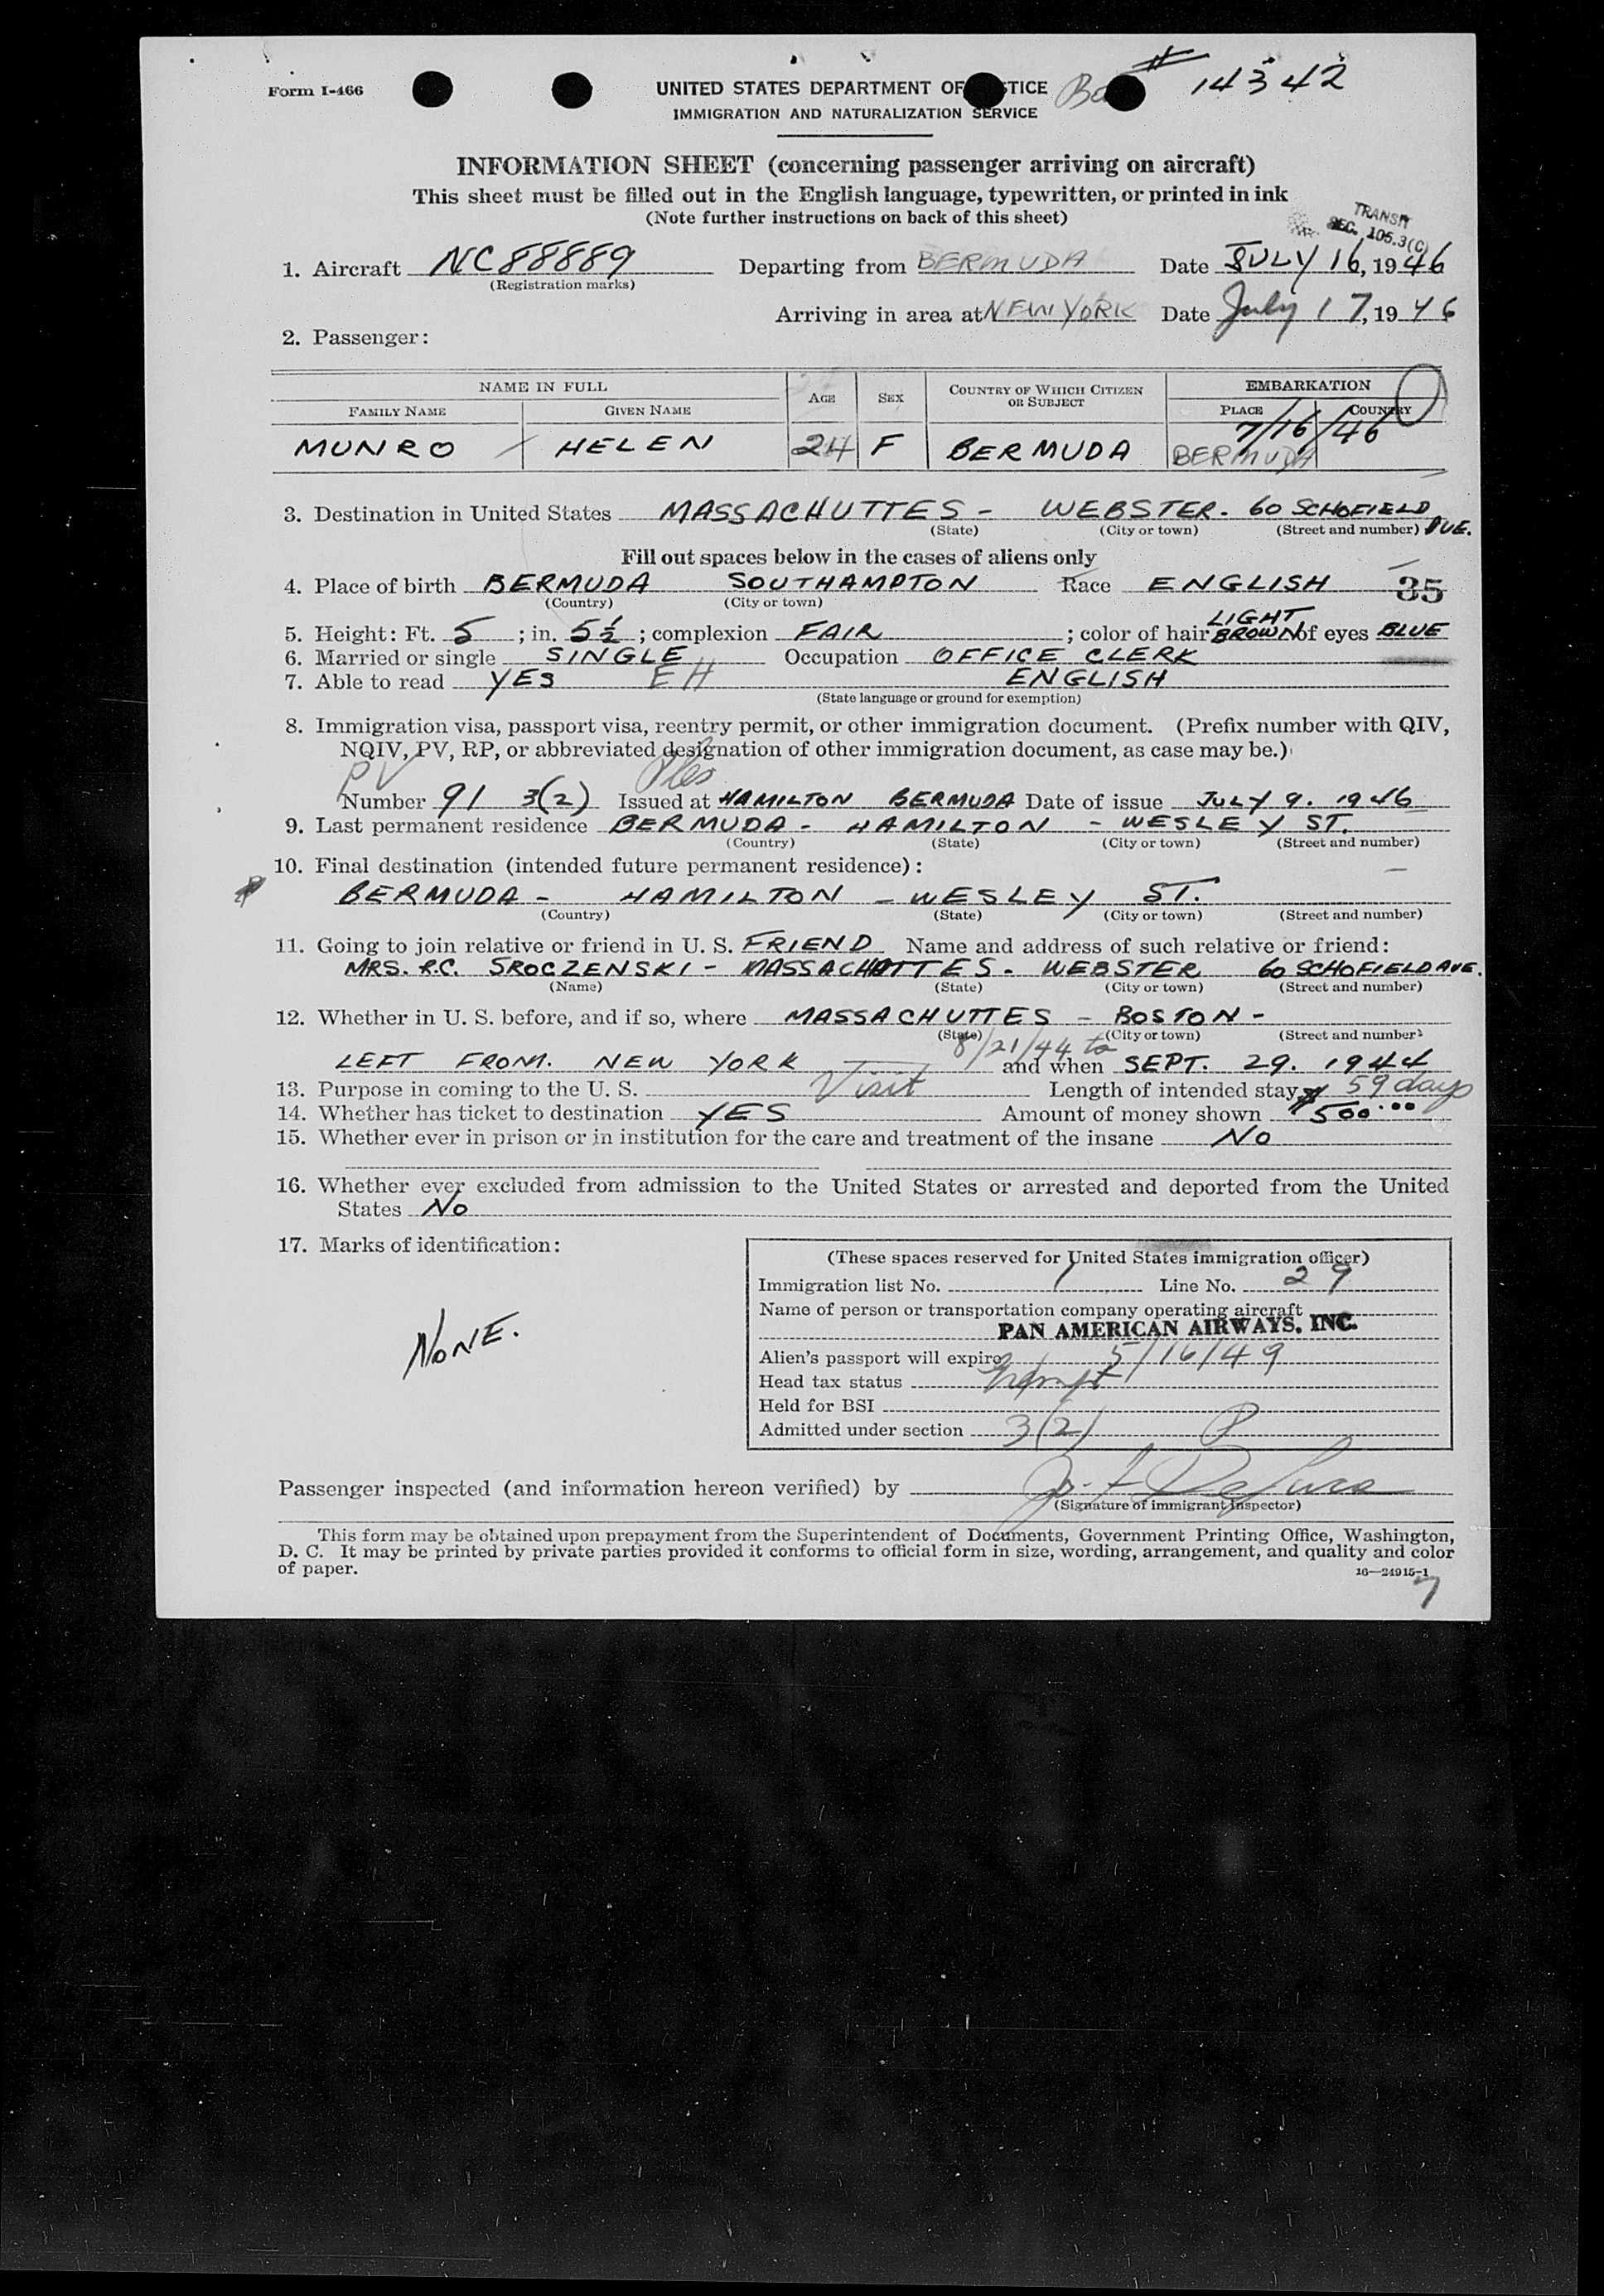 Form I-466
UNITED STATES DEPARTMENT OF JUSTICE
# 14342
IMMIGRATION AND NATURALIZATION SERVICE
INFORMATION SHEET (concerning passenger arriving on aircraft)
This sheet must be filled out in the English language, typewritten, or printed in ink
(Note further instructions on back of this sheet)
TRANSIT
SEC. 105.3(C)
1. Aircraft NC88889 Departing from BERMUDA Date JULY 16, 1946
(Registration marks)
Arriving in area at NEW YORK Date July 17, 1946
2. Passenger:
NAME IN FULL AGE SEX COUNTRY OF WHICH CITIZEN OR SUBJECT EMBARKATION
FAMILY NAME GIVEN NAME PLACE COUNTRY
7/16/46
MUNRO HELEN 24 F BERMUDA BERMUDA
3. Destination in United States MASSACHUTTES - WEBSTER. 60 SCHOFIELD AVE.
(State) (City or town) (Street and number)
Fill out spaces below in the cases of aliens only
4. Place of birth BERMUDA SOUTHAMPTON Race ENGLISH 35
(Country) (City or town)
5. Height: Ft. 5 ; in. 5 1/2 ; complexion FAIR ; color of hair LIGHT BROWN of eyes BLUE
6. Married or single SINGLE Occupation OFFICE CLERK
7. Able to read YES EH ENGLISH
(State language or ground for exemption)
8. Immigration visa, passport visa, reentry permit, or other immigration document. (Prefix number with QIV,
NQIV, PV, RP, or abbreviated designation of other immigration document, as case may be.)
PV
Number 91 3(2) Issued at HAMILTON BERMUDA Date of issue JULY 9. 1946
9. Last permanent residence BERMUDA - HAMILTON - WESLEY ST.
(Country) (State) (City or town) (Street and number)
10. Final destination (intended future permanent residence):
BERMUDA - HAMILTON - WESLEY ST.
(Country) (State) (City or town) (Street and number)
11. Going to join relative or friend in U. S. FRIEND Name and address of such relative or friend:
MRS. R.C. SROCZENSKI - MASSACHUTTES - WEBSTER 60 SCHOFIELD AVE.
(Name) (State) (City or town) (Street and number)
12. Whether in U. S. before, and if so, where MASSACHUTTES - BOSTON -
(State) (City or town) (Street and number)
8/21/44 to
LEFT FROM. NEW YORK and when SEPT. 29. 1944
13. Purpose in coming to the U. S. Visit Length of intended stay 59 days
14. Whether has ticket to destination YES Amount of money shown $500.00
15. Whether ever in prison or in institution for the care and treatment of the insane No
16. Whether ever excluded from admission to the United States or arrested and deported from the United
States No
17. Marks of identification:
NONE.
(These spaces reserved for United States immigration officer)
Immigration list No. 1 Line No. 29
Name of person or transportation company operating aircraft
PAN AMERICAN AIRWAYS, INC.
Alien's passport will expire 5/16/49
Head tax status Exempt
Held for BSI
Admitted under section 3(2) P
Passenger inspected (and information hereon verified) by
(Signature of immigrant inspector)
This form may be obtained upon prepayment from the Superintendent of Documents, Government Printing Office, Washington,
D. C. It may be printed by private parties provided it conforms to official form in size, wording, arrangement, and quality and color
of paper.
16—24915-1
7